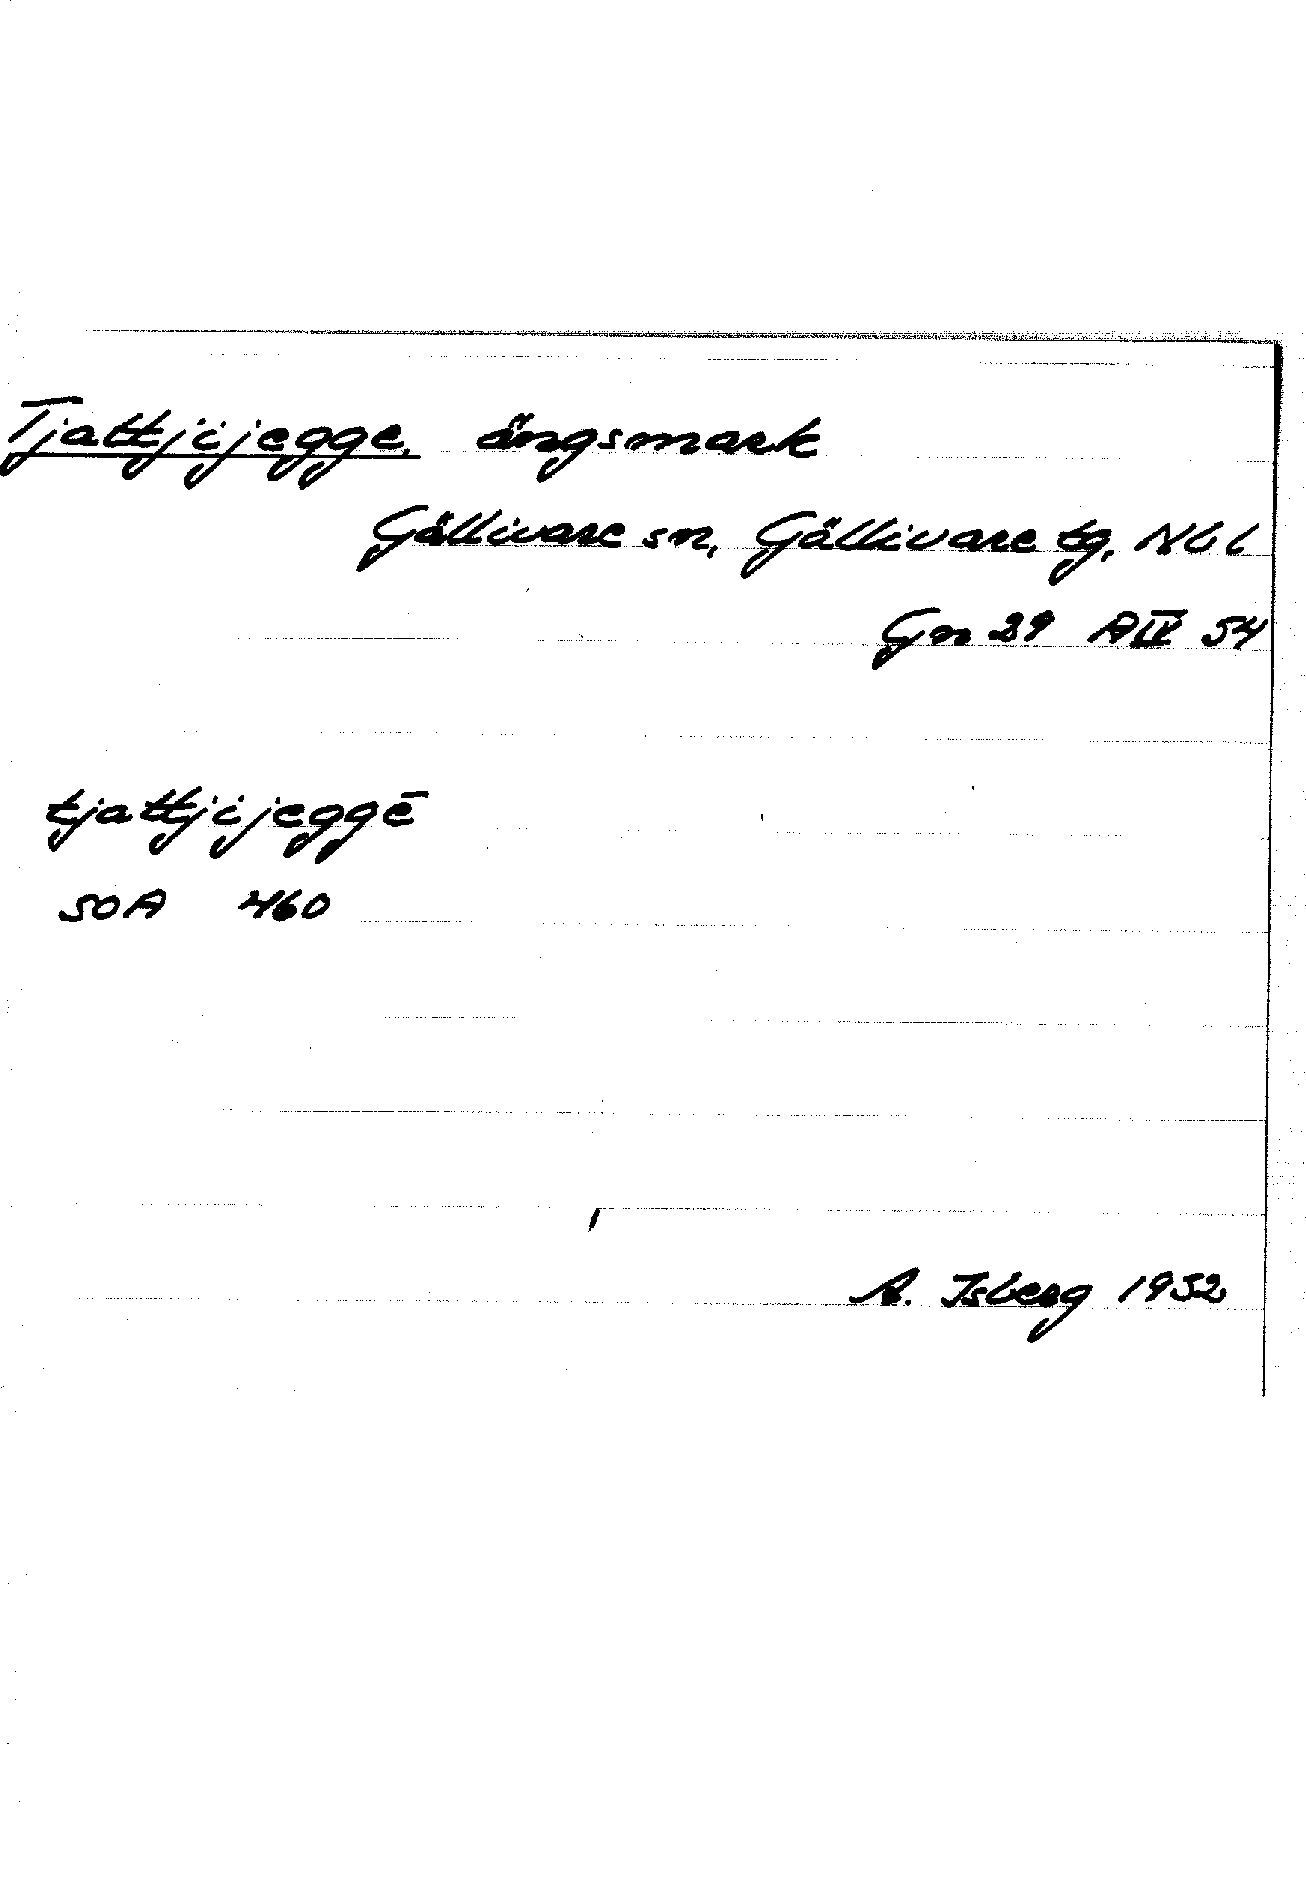 Tjattjijegge, ängsmark
Gällivare sn, Gällivare tg, Nbl
Gn 29 AIV 54
tjattjijeggē
SOA 460
A. Isberg 1932